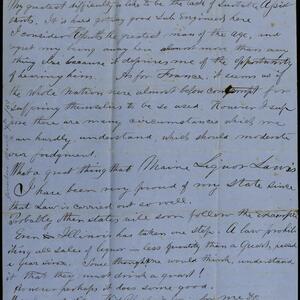 My greatest difficulty is like to be the lack of suitable Assist
ants. It is hard getting good Sub Engineers here
I consider the greatest man of the age, and
regret my being away here almost more than any
thing else because it deprives me of the opportunity
of hearing him. As for France, it seems as if
the whole Nation were almost before contempt for
suffering themselves to be so used. However I sup
pose there are many circumstances which we
can hardly understand, which should moderate
our judgment.
What a great thing that Maine Liquor Law is
I have been very proud of my State since
that Law is carried out so well.
Probably other states will soon follow the example
Even Illinois has taken one step. A law prohib
iting all sales of liquor — less quantity than a Quart, passed
a year since. Some though we would think, understand
it that they must drink a quart!
However perhaps it does some good.
me to